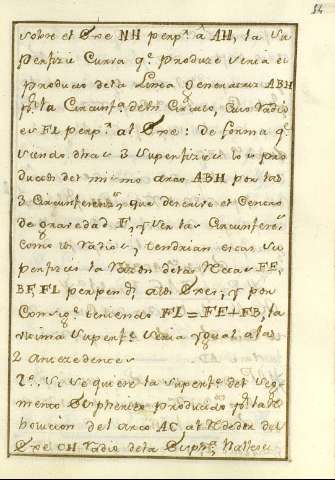 14
sobre el Exe NH perpᵈ. â AH, la Su
perficie Curva qᵉ. produze seria el
producto dela Linea generatriz ABH
pʳ. la Circunfᵃ. del Circulo, Cuio Radio
es FL perpᵈ. al Exe: de forma qᵉ.
siendo dhas 3 superficies los pro
ductos del mismo arco ABH por las
3 Circunferencias que descrive el Centro
de gravedad F, y son las Circunferenˢ
como los Radios, tendrian estas Su
perficies la Razon de las Rectas FE,
BF, FL perpend. a los Exes, y por
Consigᵉ. teniendo FL = FE + FB, la
ultima superfᵉ. seria ygual a las
2 antecedentes
2º. Si se quiere la superfᵉ. del seg
mento Espherico producido pʳ. la Re
bolucion del arco AC al Rededor del
Exe CH Radio de la Esphᵃ, hallese